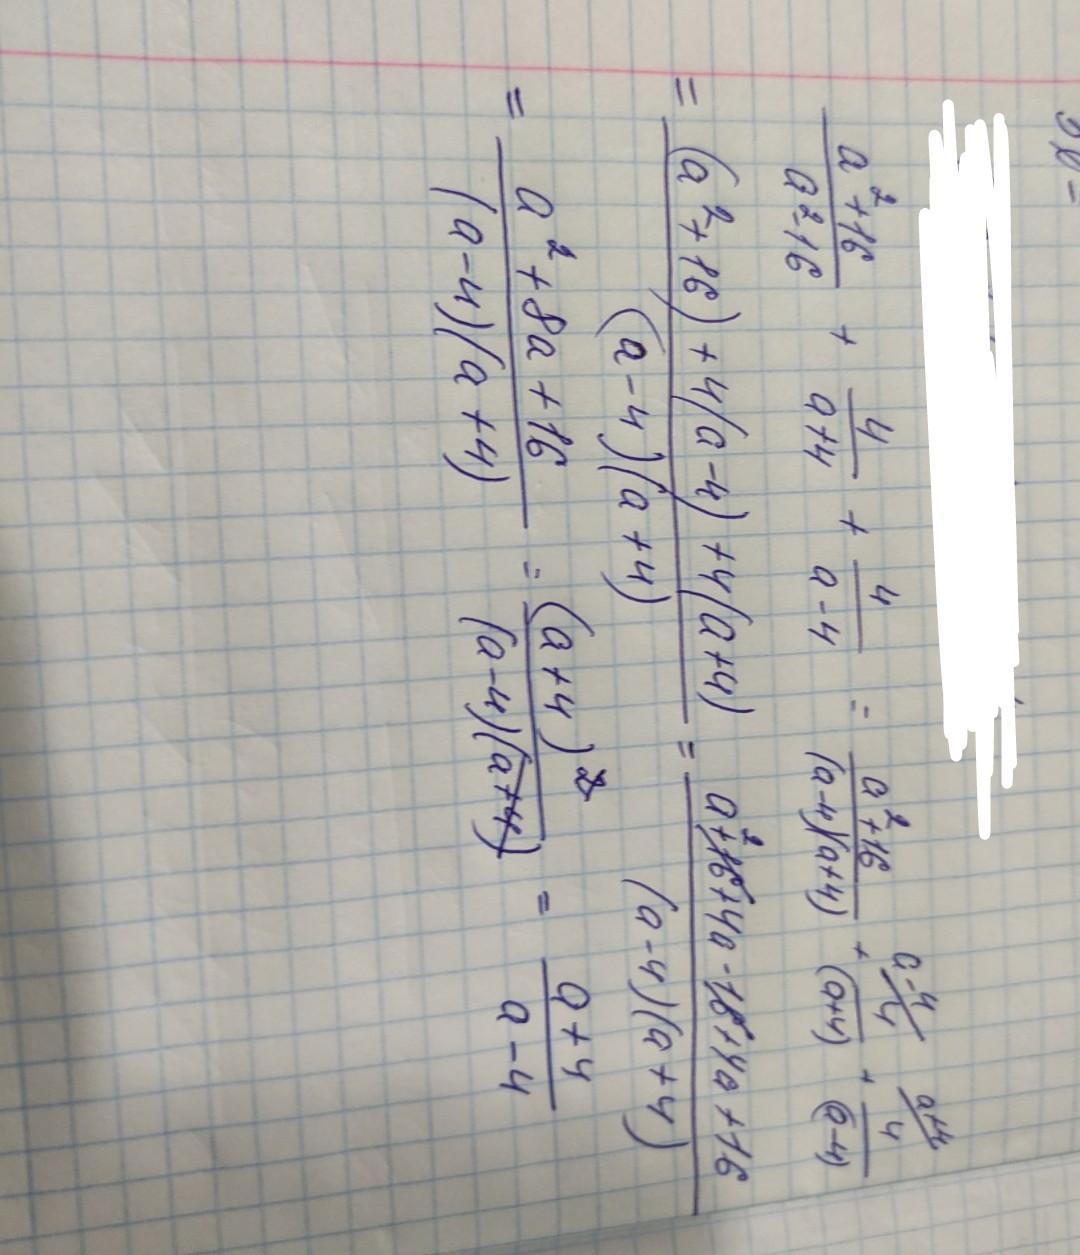 (a²+16)/(a²-16) + 4/(a+4) + 4/(a-4) = (a²+16)/((a-4)(a+4)) + a-4/ 4/(a+4) + a+4/ 4/(a-4)
= ((a²+16)+4(a-4)+4(a+4))/((a-4)(a+4)) = (a²+16+4a-16+4a+16)/((a-4)(a+4))
= (a²+8a+16)/((a-4)(a+4)) = (a+4)²/((a-4)(a+4)) = (a+4)/(a-4)